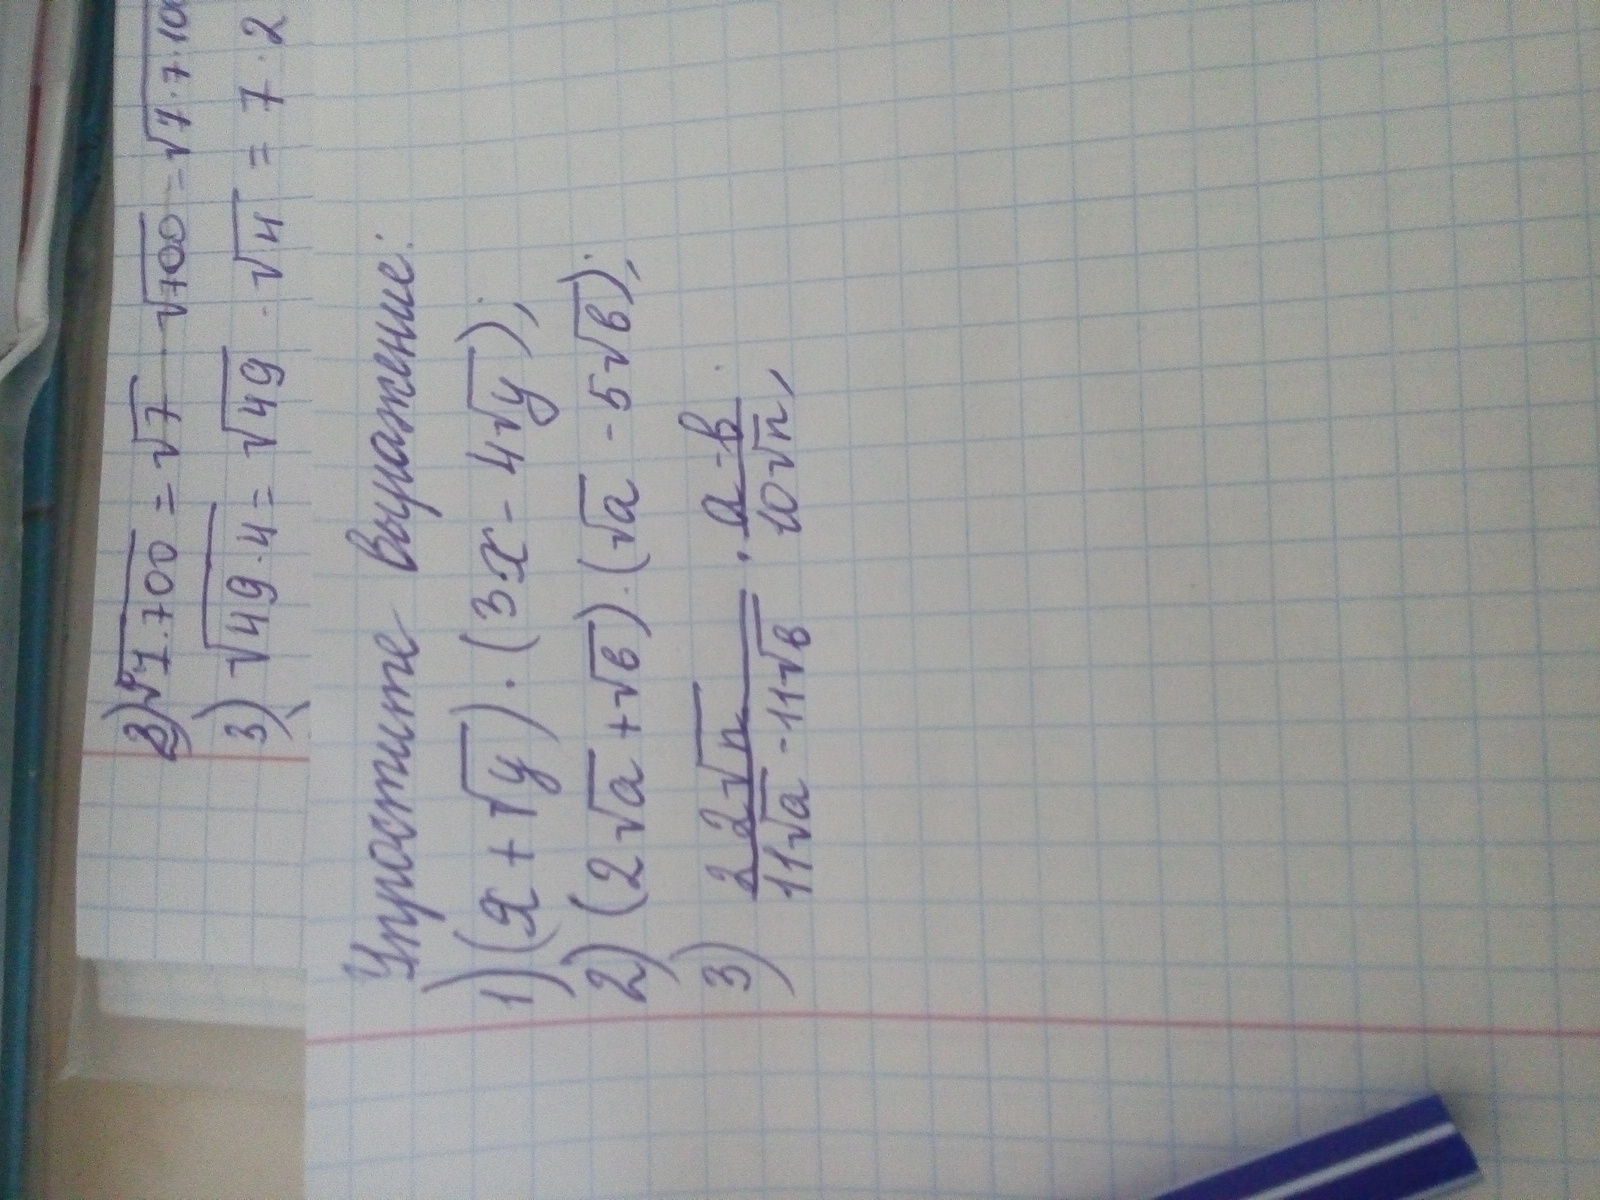 2) √7·700 = √7 · √700 = √7·7·100
3) √49·4 = √49 · √4 = 7·2
Упростите выражение:
1) (x + √y) · (3x - 4√y);
2) (2√a + √в) · (√a - 5√в);
3) 22√n / 11√a - 11√в · a-в / 10√n;